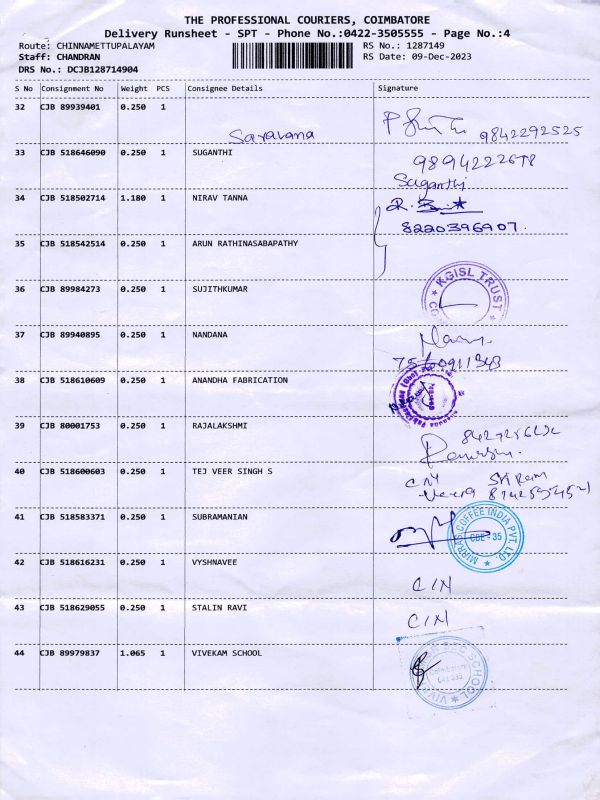 THE PROFESSIONAL COURIERS, COIMBATORE
Delivery Runsheet - SPT - Phone No.:0422-3505555 - Page No.:4
Route: CHINNAMETTUPALAYAM RS No.: 1287149
Staff: CHANDRAN RS Date: 09-Dec-2023
DRS No.: DCJB128714904
S No Consignment No Weight PCS Consignee Details Signature
32 CJB 89939401 0.250 1
Saravana 9842292525
33 CJB 518646090 0.250 1 SUGANTHI
Suganthi
34 CJB 518502714 1.180 1 NIRAV TANNA
8220396907.
35 CJB 518542514 0.250 1 ARUN RATHINASABAPATHY
36 CJB 89984273 0.250 1 SUJITHKUMAR
KGISL TRUST
37 CJB 89940895 0.250 1 NANDANA
38 CJB 518610609 0.250 1 ANANDHA FABRICATION
39 CJB 80001753 0.250 1 RAJALAKSHMI
40 CJB 518600603 0.250 1 TEJ VEER SINGH S
41 CJB 518583371 0.250 1 SUBRAMANIAN
COFFEE INDIA PVT. LTD
CBE - 35
42 CJB 518616231 0.250 1 VYSHNAVEE
43 CJB 518629055 0.250 1 STALIN RAVI
44 CJB 89979837 1.065 1 VIVEKAM SCHOOL
SCHOOL